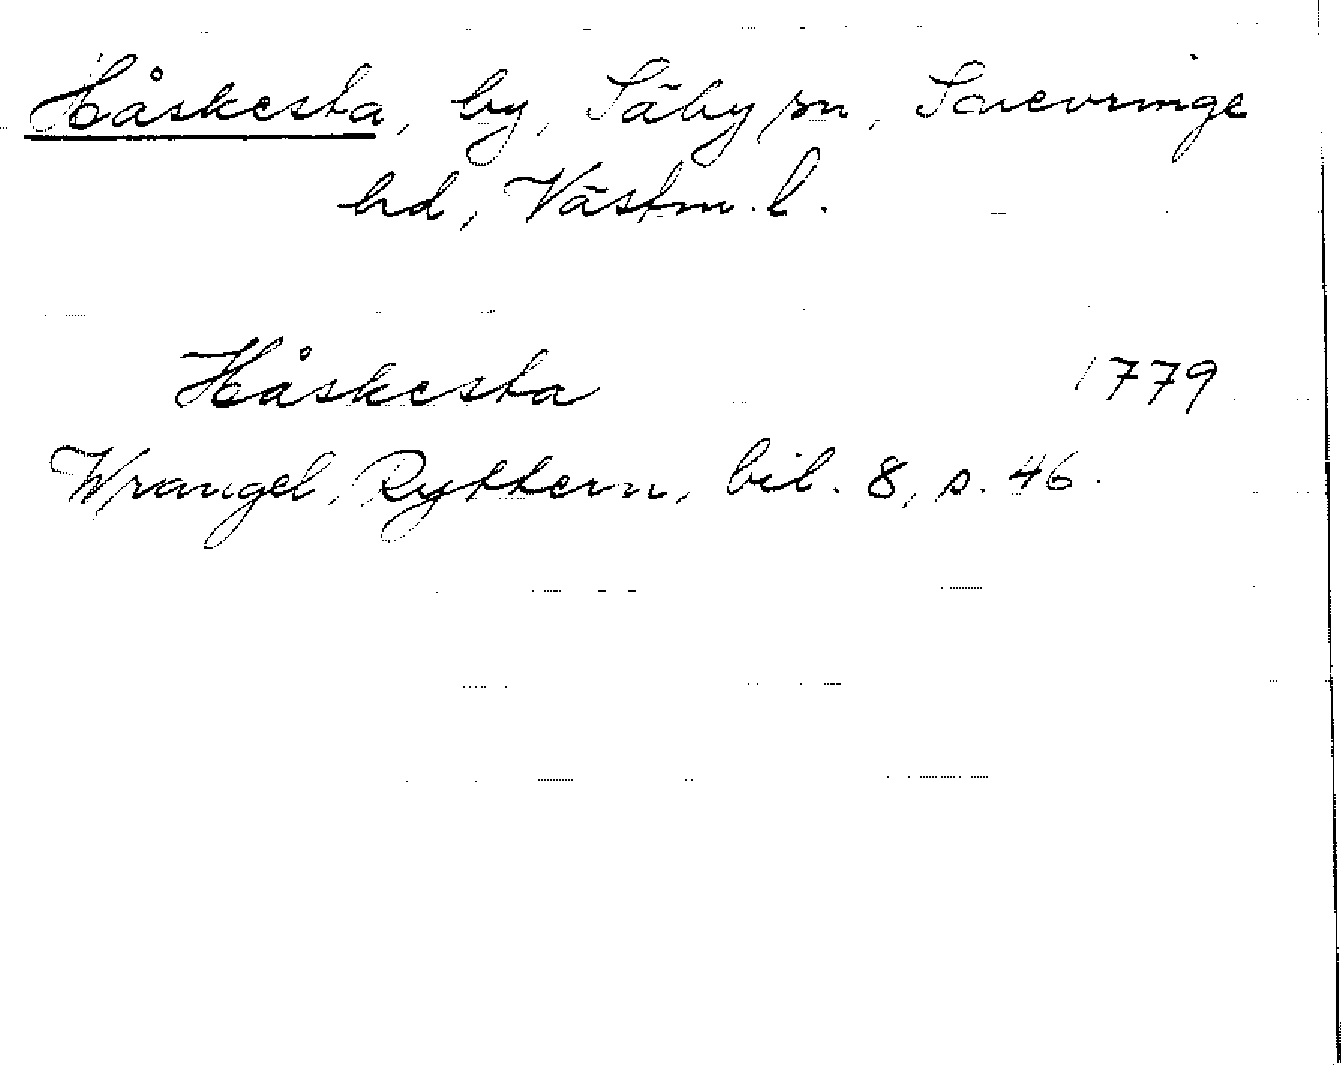 Håskesta, by, Säby sn, Snevringe
hd, Västm. l.
Håskesta 1779
Wrangel, Ryttern, bil. 8, s. 46.